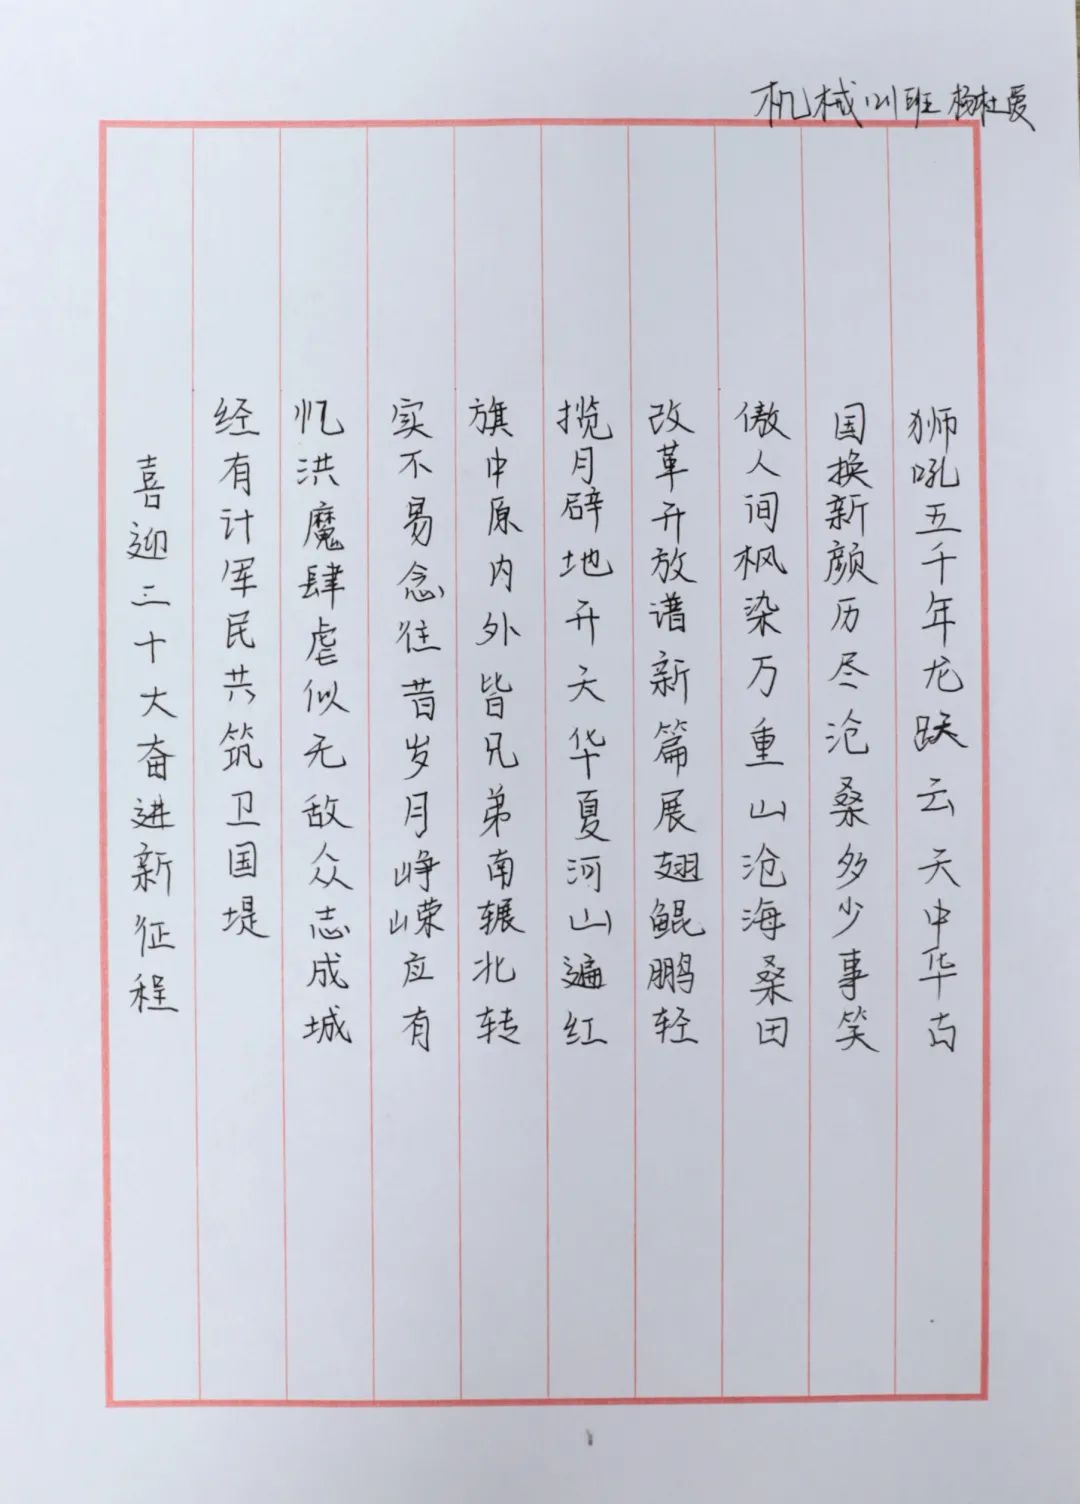 机械1211班 杨杜爱
狮吼五千年龙跃云天中华古
国换新颜历尽沧桑多少事笑
傲人间枫染万重山沧海桑田
改革开放谱新篇展翅鲲鹏轻
揽月辟地开天华夏河山遍红
旗中原内外皆兄弟南辗北转
实不易念往昔岁月峥嵘应有
忆洪魔肆虐似无敌众志成城
经有计军民共筑卫国堤
喜迎二十大奋进新征程